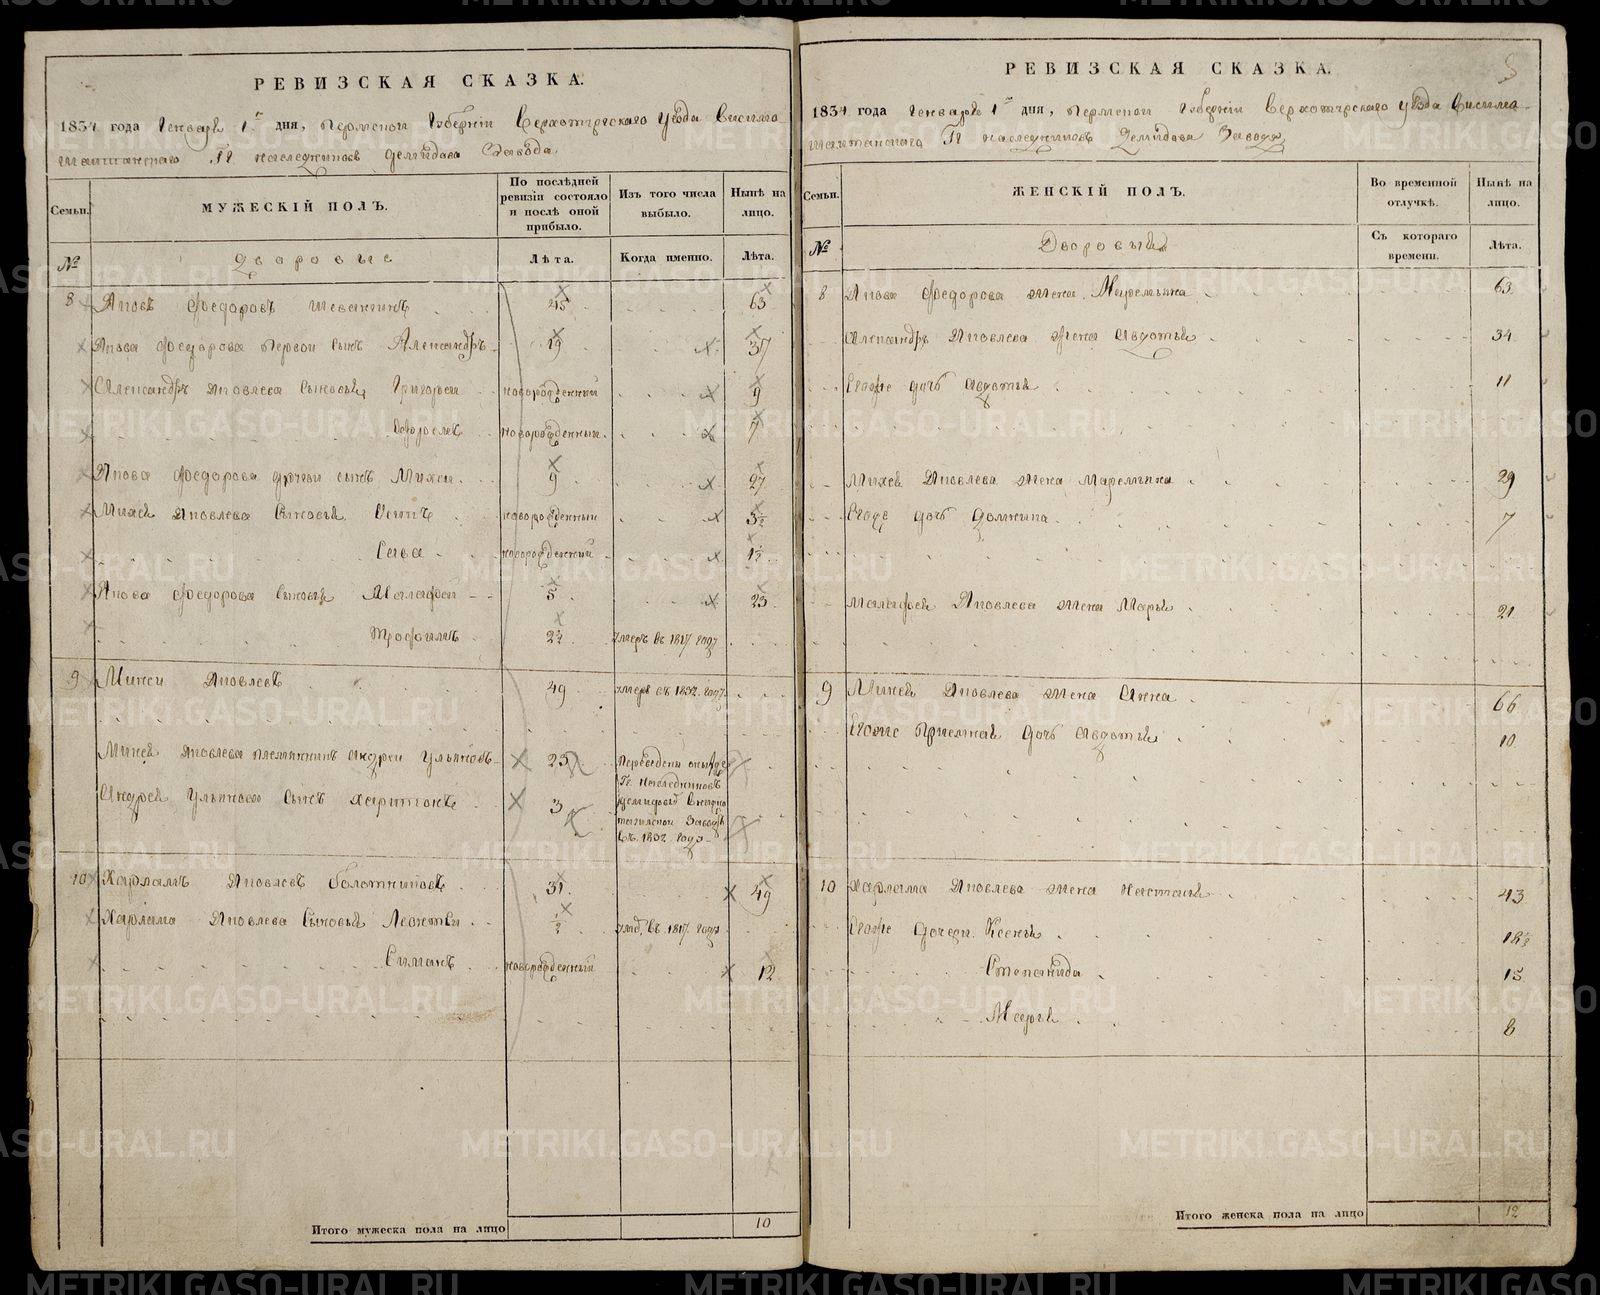 РЕВИЗСКАЯ СКАЗКА.
1834 года Генваря 1го дня, Пермской Губерніи Верхотурскаго Уѣзда Висимо
шайтанскаго Гг наслѣдниковъ Демидова Завода
Семьи.
МУЖЕСКІЙ ПОЛЪ.
По послѣдней ревизіи состояло и послѣ оной прибыло.
Изъ того числа выбыло.
Нынѣ на лицо.
№
Дворовые
Лѣта.
Когда именно.
Лѣта.
8 Яковъ Федоровъ 45 63
Якова Федорова первой сынъ Александръ 19 37
Александръ Яковлева сыновья Григорей новорожденный 9
новорожденный 7
Якова Федорова другой сынъ Михей 9 27
Михея Яковлева сыновья Осипъ новорожденный 3½
Сава новорожденный 1½
Якова Федорова сыновья Малафей 5 23
Трофимъ 2¼ умеръ въ 1817 году
9 Михей Яковлевъ 49 умеръ въ 1832 году
Михея Яковлева племянникъ Андрей Ульяновъ 25
Андрея Ульянова сынъ Харитонъ 3
Переведены
Гг Наследниковъ
Демидова Нижно
тагилской Заводъ
въ 1832 году
10 Харламъ Яковлевъ Болотниковъ 31 49
Харлама Яковлева сыновья Леонтей ½ умеръ въ 1817 году
Симанъ новорожденный 12
Итого мужеска пола на лицо 10
РЕВИЗСКАЯ СКАЗКА.
1834 года Генваря 1го дня, Пермской Губерніи Верхотурскаго Уѣзда Висимо
шайтанскаго Гг наследниковъ Демидова Завода
Семьи.
ЖЕНСКІЙ ПОЛЪ.
Во временной отлучкѣ.
Нынѣ на лицо.
№
Дворовыя
Съ котораго времени.
Лѣта.
8 Якова Федорова жена Маремьяна 63
Александръ Яковлева жена Авдотья 34
Егожъ дочь Авдотья 11
Михея Яковлева жена Маремьяна 29
Егожъ дочь Домнина 7
Малафея Яковлева жена Марья 21
9 Михея Яковлева жена Анна 66
Егоже Приемная дочь Авдотья 10
10 Харлама Яковлева жена Настасья 43
Егоже Дочери Ксенья 18½
Степанида 15
Марья 8
Итого женска пола на лицо 12
METRIKI.GASO-URAL.RU